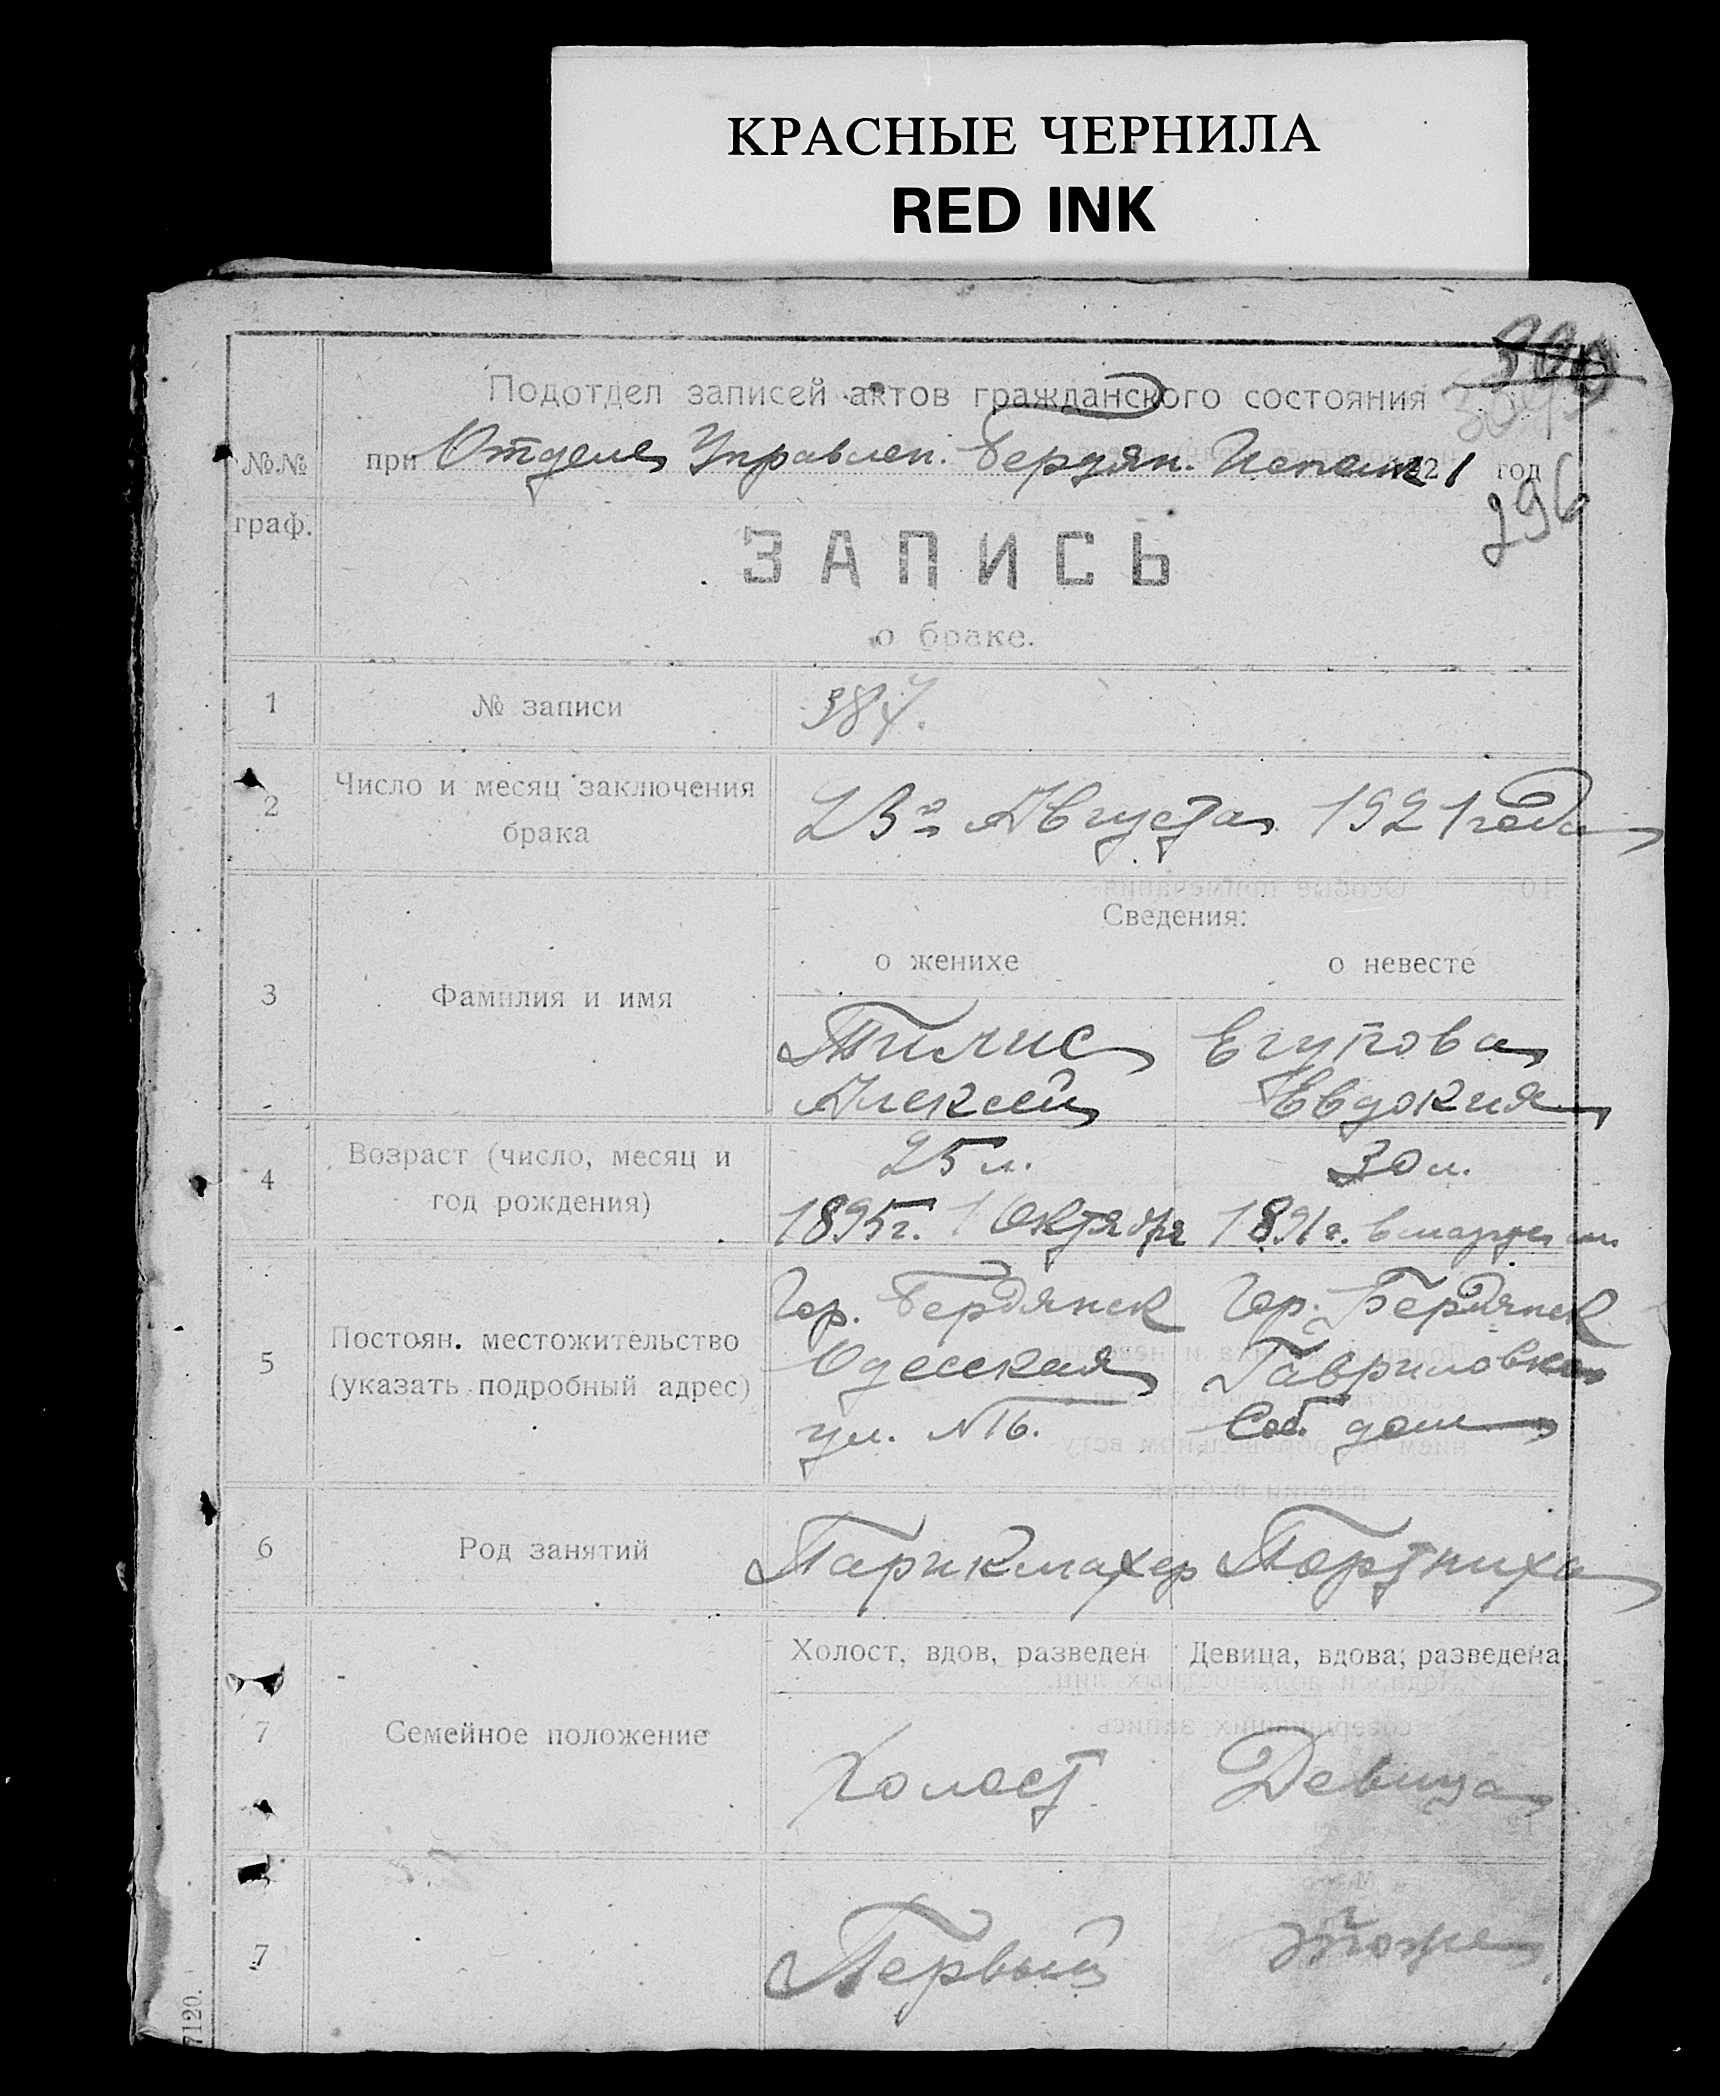 КРАСНЫЕ ЧЕРНИЛА
RED INK
Подотдел записей актов гражданского состояния
при Отделе Управлен. Бердян. Исполк 1921 год
296
№№
граф.
ЗАПИСЬ
о браке.
1 № записи 387.
2 Число и месяц заключения брака 23го Августа 1921 года
Сведения:
о женихе о невесте
3 Фамилия и имя Тилис Егупова
Алексей Евдокия
4 Возраст (число, месяц и 25 л. 30 л.
год рождения) 1895г. 1 Октября 1891г.
5 Постоян. местожительство Гор. Бердянск Гор. Бердянск
(указать подробный адрес) Одесская Гавриловка
ул. №16. Соб. дом
6 Род занятий Парикмахер Портниха
Холост, вдов, разведен Девица, вдова, разведена
7 Семейное положение Холост Девица
7 Первый тоже
7120.